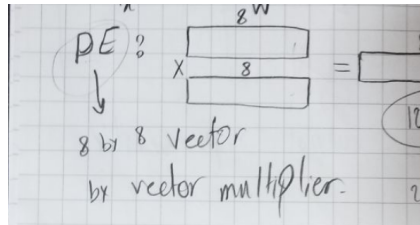 8 W
PE ?
X 8 =
12
8 by 8 vector
by vector multiplier.
2